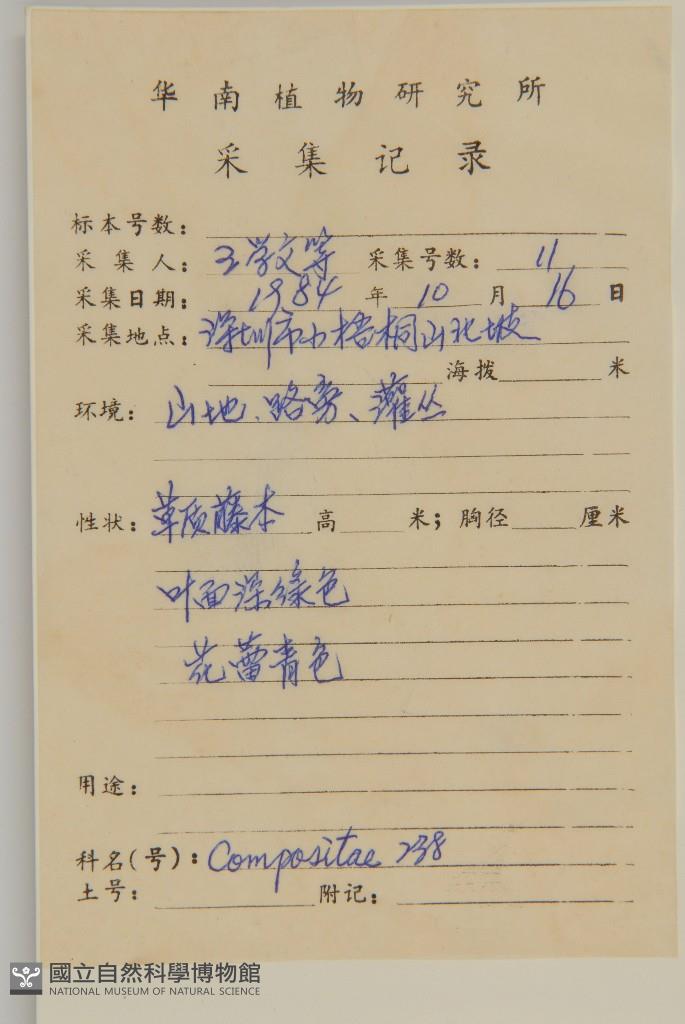 华南植物研究所
采集记录
标本号数：
采集人：王学文等 采集号数：11
采集日期：1984年10月16日
采集地点：深圳市小梧桐山北坡
海拨 米
环境：山地、路旁、灌丛
性状：草质藤本 高 米；胸径 厘米
叶面深绿色
花蕾青色
用途：
科名(号)：Compositae 238
土号： 附记：
國立自然科學博物館
NATIONAL MUSEUM OF NATURAL SCIENCE